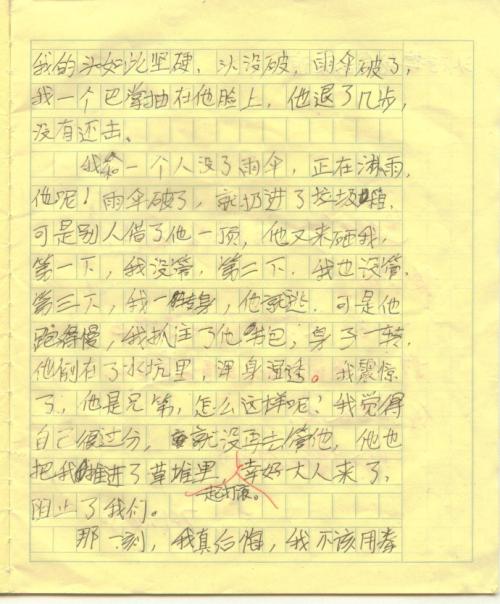 我的头如此坚硬，头没破，雨伞破了，
我一个巴掌抽在他脸上，他退了几步，
没有还击。
我一个人没了雨伞，正在淋雨，
他呢！雨伞破了，就扔进了垃圾箱，
可是别人借了他一顶，他又来砸我，
第一下，我没管，第二下，我也没管，
第三下，我一转身，他就逃，可是他
跑得慢，我抓住了他书包，身子一转，
他倒在了水坑里，浑身湿透。我震惊
了，他是兄弟，怎么这样呢？我觉得
自己很过分，就没再去管他，他也
把我推进了草堆里，幸好大人来了，
阻止了我们。
那一刻，我真后悔，我不该用拳